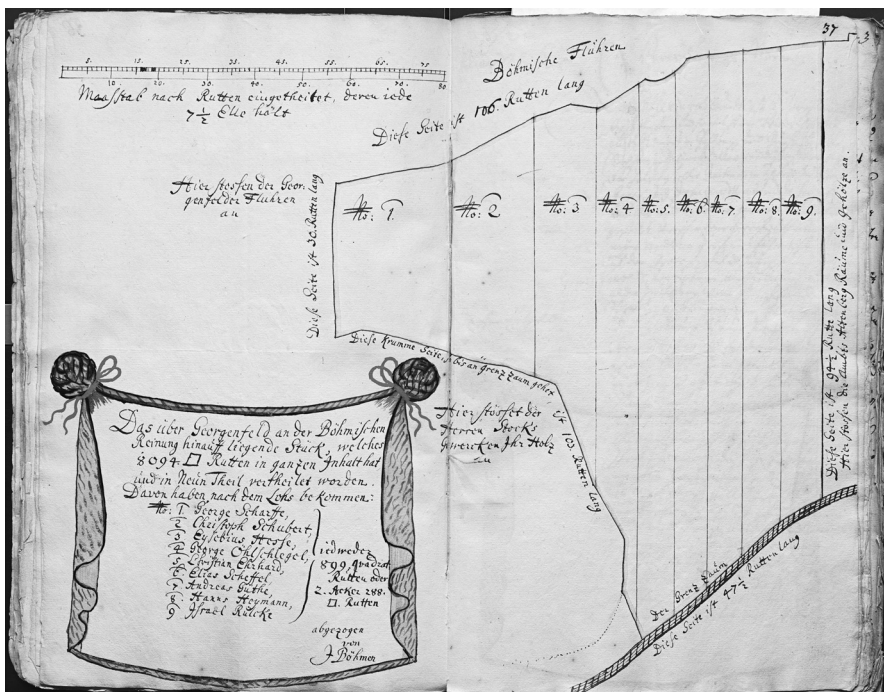 37
5. 15. 25. 35. 45. 55. 65. 75
10. 20. 30. 40. 50. 60. 70. 80
Maasstab nach Rutten eingetheilet, deren iede
7 1/2 Elle hält
Böhmische Fluhren
Diese Seite ist 106. Rutten lang
Hier stossen der Geor-
genfelder Fluhren
an
Diese Seite ist 30. Rutten lang
No: 1.
No: 2
No: 3
No: 4
No: 5.
No: 6.
No: 7.
No: 8.
No: 9.
Diese Seite ist 94 1/2 Rutte lang
Hier stossen die Ambts Altenberg Räume und Gehöltze an.
Diese krumme Seite, bis an grenz zaum gehet
ist 103. Rutten lang
Hier stösset der
Herren Stocks
gwercken Ihr Holz
an
Der Grenz Zaum
Diese Seite ist 47 1/2 Rutten lang
Das über Georgenfeld an der Böhmischen
Reinung hinauf liegende Stück, welches
8094 □ Rutten in ganzen Inhalt hat
und in Neün Theil vertheilet worden.
Davon haben nach dem Lohs bekommen:
No: 1 George Scharffe,
2 Christoph Schubert,
3 Eusebius Hesse,
4 George Ohlschlegel,
5 Christian Ehrhard,
6 Elias Scheffel,
7 Andreas Guthe,
8 Hanns Heymann,
9 Israel Rülcke
iedweder
899. Qvadrat
Rutten oder
2. Acker 288.
□. Rutten
abgezogen
von
J. Böhmen